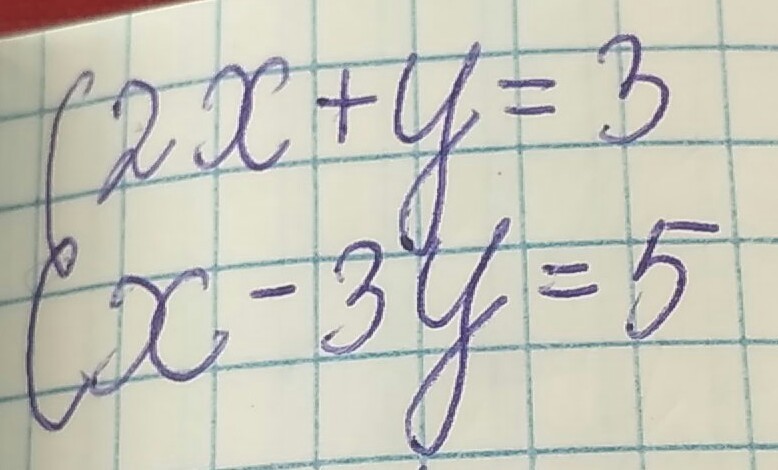 2x + y = 3
x - 3y = 5